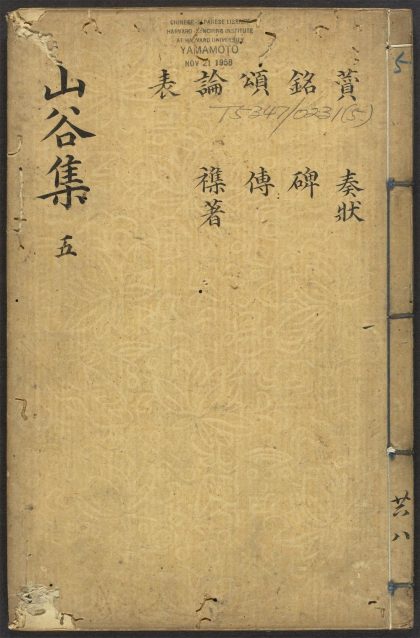 CHINESE-JAPANESE LIBRARY
HARVARD-YENCHING INSTITUTE
AT HARVARD UNIVERSITY
YAMAMOTO
NOV 21 1958
T5347/0231(5)
5
賛 奏狀
銘 碑
頌 傳
論 襍著
表
山谷集 五
共八